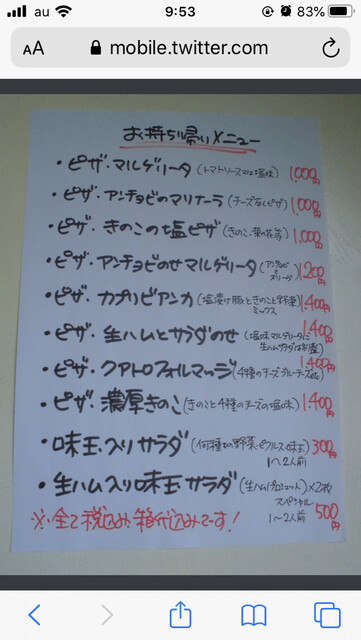 au 9:53 83%
AA mobile.twitter.com
お持ち帰りメニュー
・ピザ・マルゲリータ(トマトソース又は塩味) 1,000円
・ピザ・アンチョビのマリナーラ(チーズなしピザ) 1,000円
・ピザ・きのこの塩ピザ(きのこ・菊花等) 1,000円
・ピザ・アンチョビのせマルゲリータ(アンチョビとオリーブ) 1,200円
・ピザ・カプリビアンカ(塩漬け豚ときのこと野菜ミックス) 1,400円
・ピザ・生ハムとサラダのせ(塩味マルゲリータに生ハムサラダは別盛) 1,400円
・ピザ・クアトロフォルマッジ(4種のチーズブルーチーズなど) 1,400円
・ピザ・濃厚きのこ(きのこと4種のチーズの塩味) 1,400円
・味玉入りサラダ(何種もの野菜・ピクルス・味玉) 300円
1〜2人前
・生ハム入り味玉サラダ(生ハム(プロシュット)×2枚
スペシャル
1〜2人前 500円
※全て税込み箱代込みです!